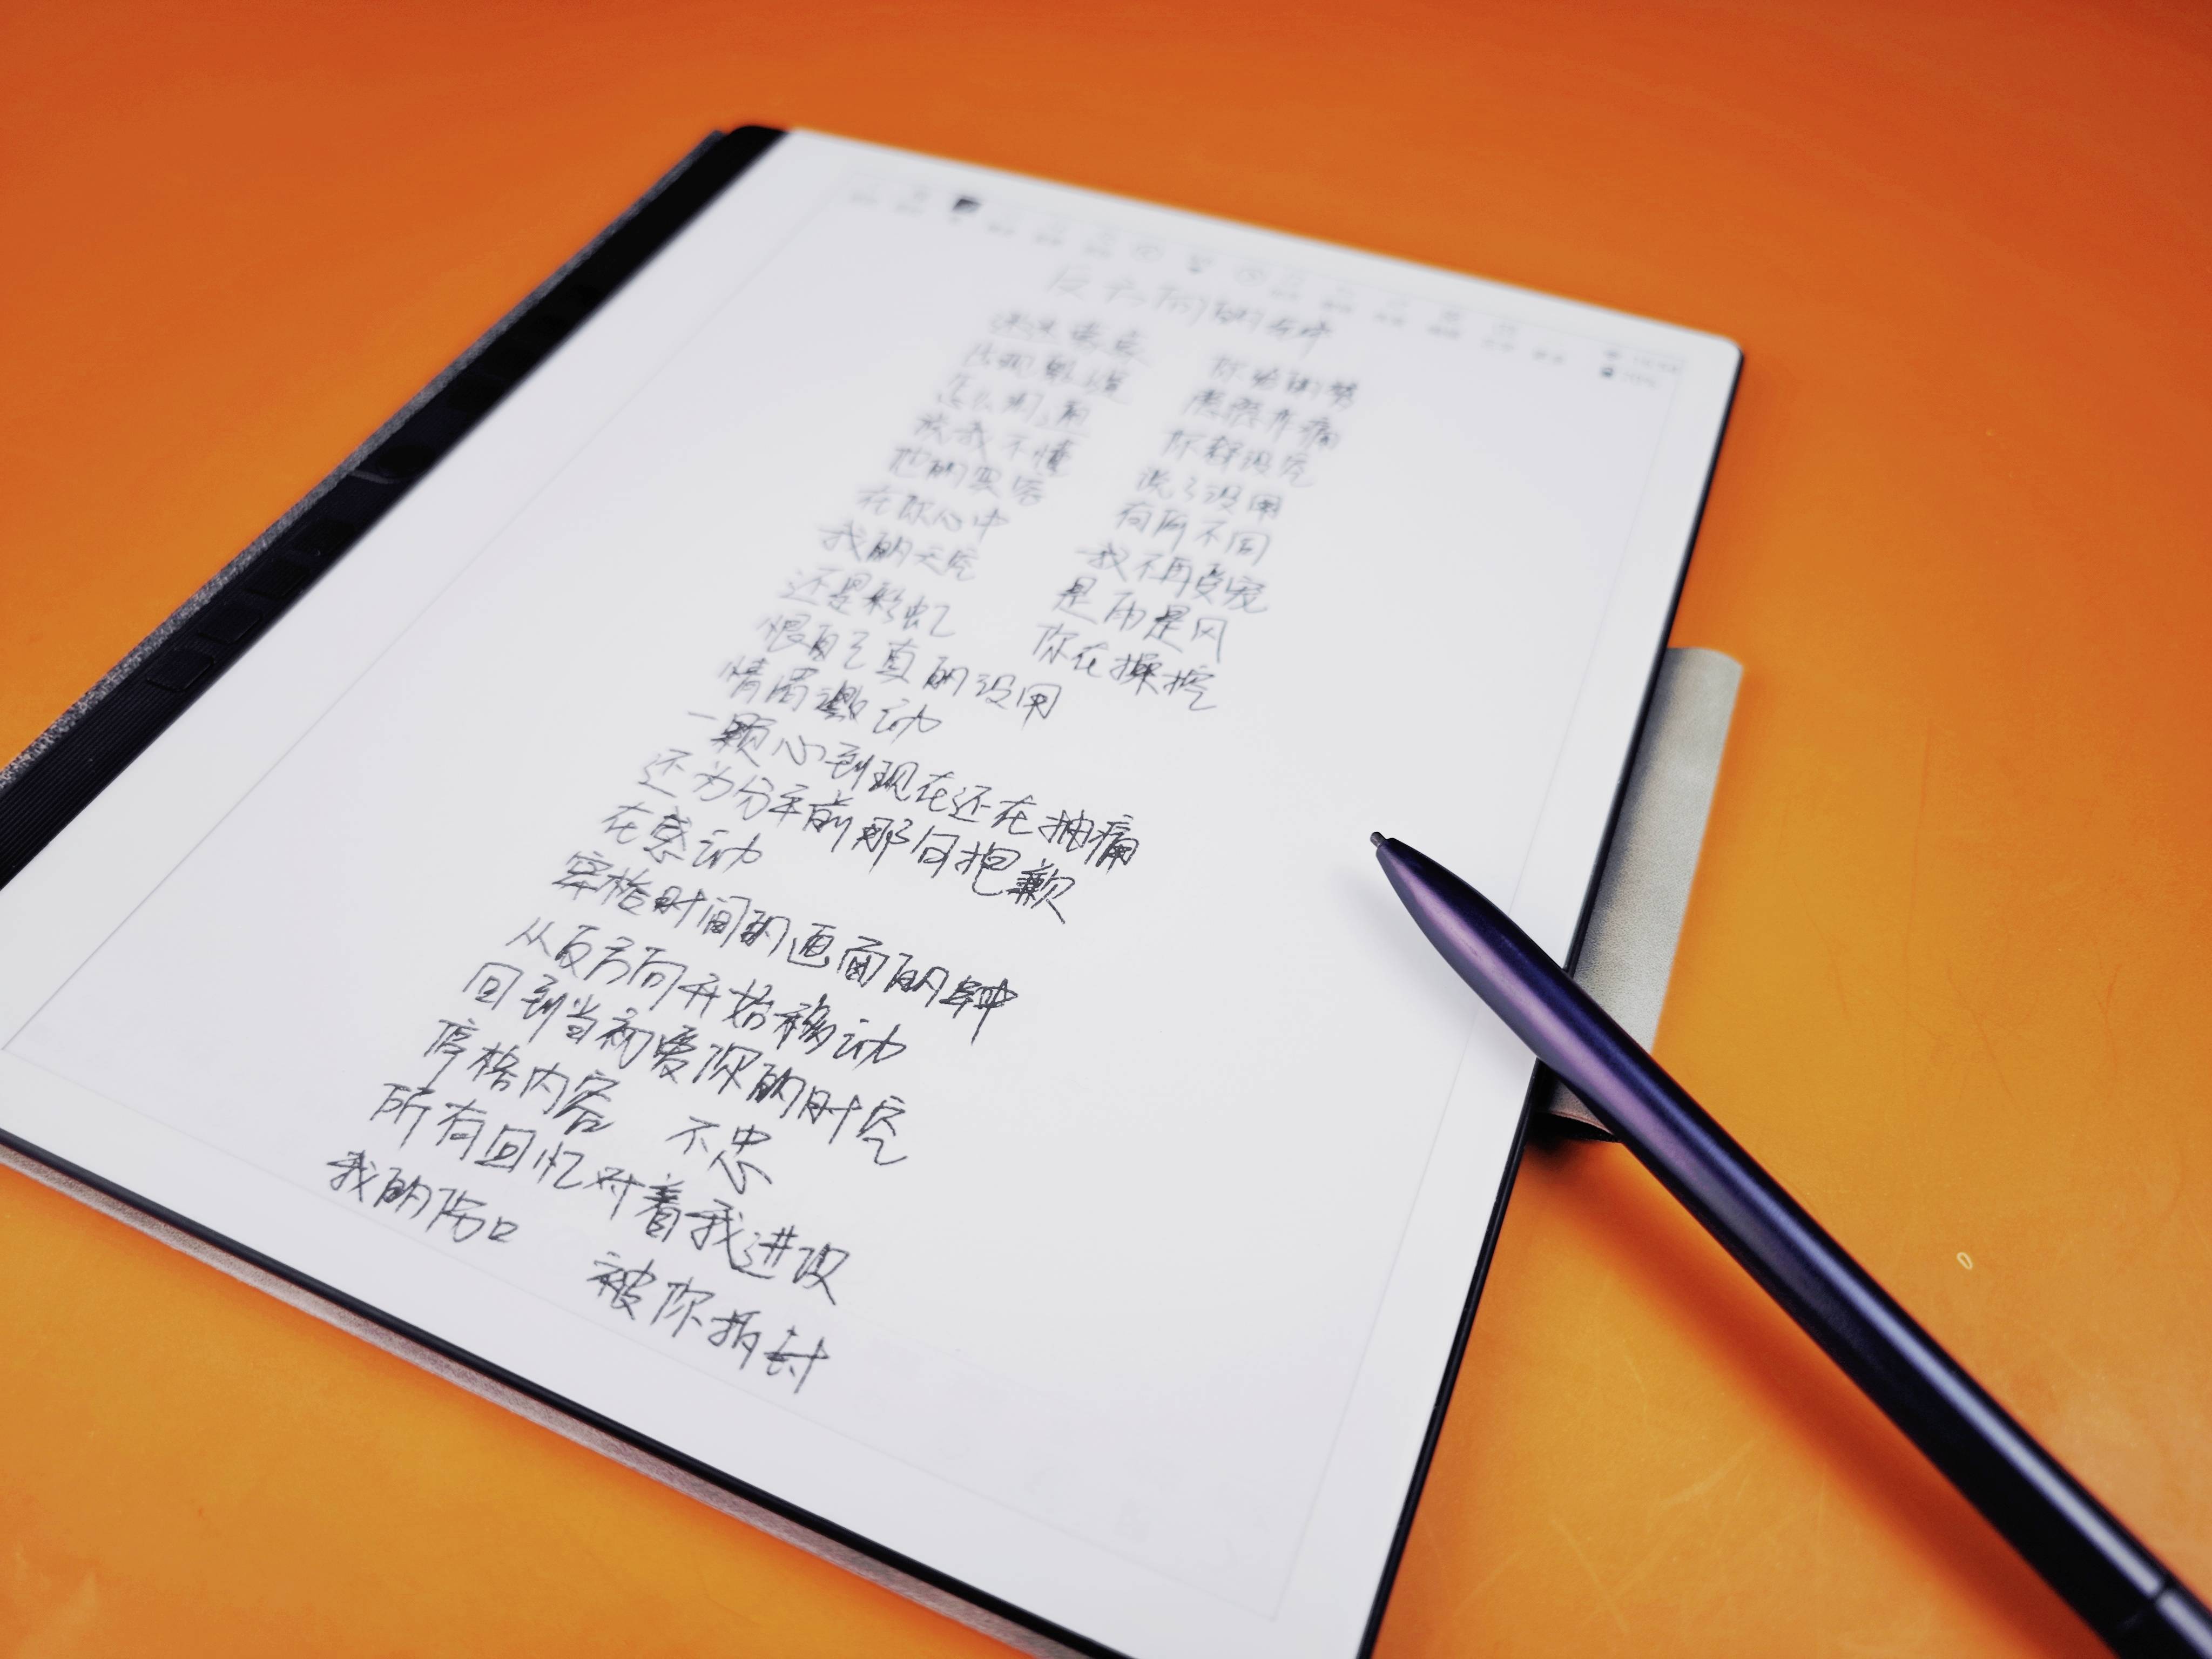 反方向的钟
迷迷蒙蒙 你给的梦
出现裂缝 隐隐作痛
怎么沟通 你都没空
说我不懂 说了没用
他的笑容 有何不同
在你心中 我不再受宠
我的天空 是雨是风
还是彩虹 你在操控
恨自己真的没用
情绪激动
一颗心到现在还在抽痛
还为分手前那句抱歉
在感动
穿梭时间的画面的钟
从反方向开始移动
回到当初爱你的时空
停格内容 不忠
所有回忆对着我进攻
我的伤口 被你拆封